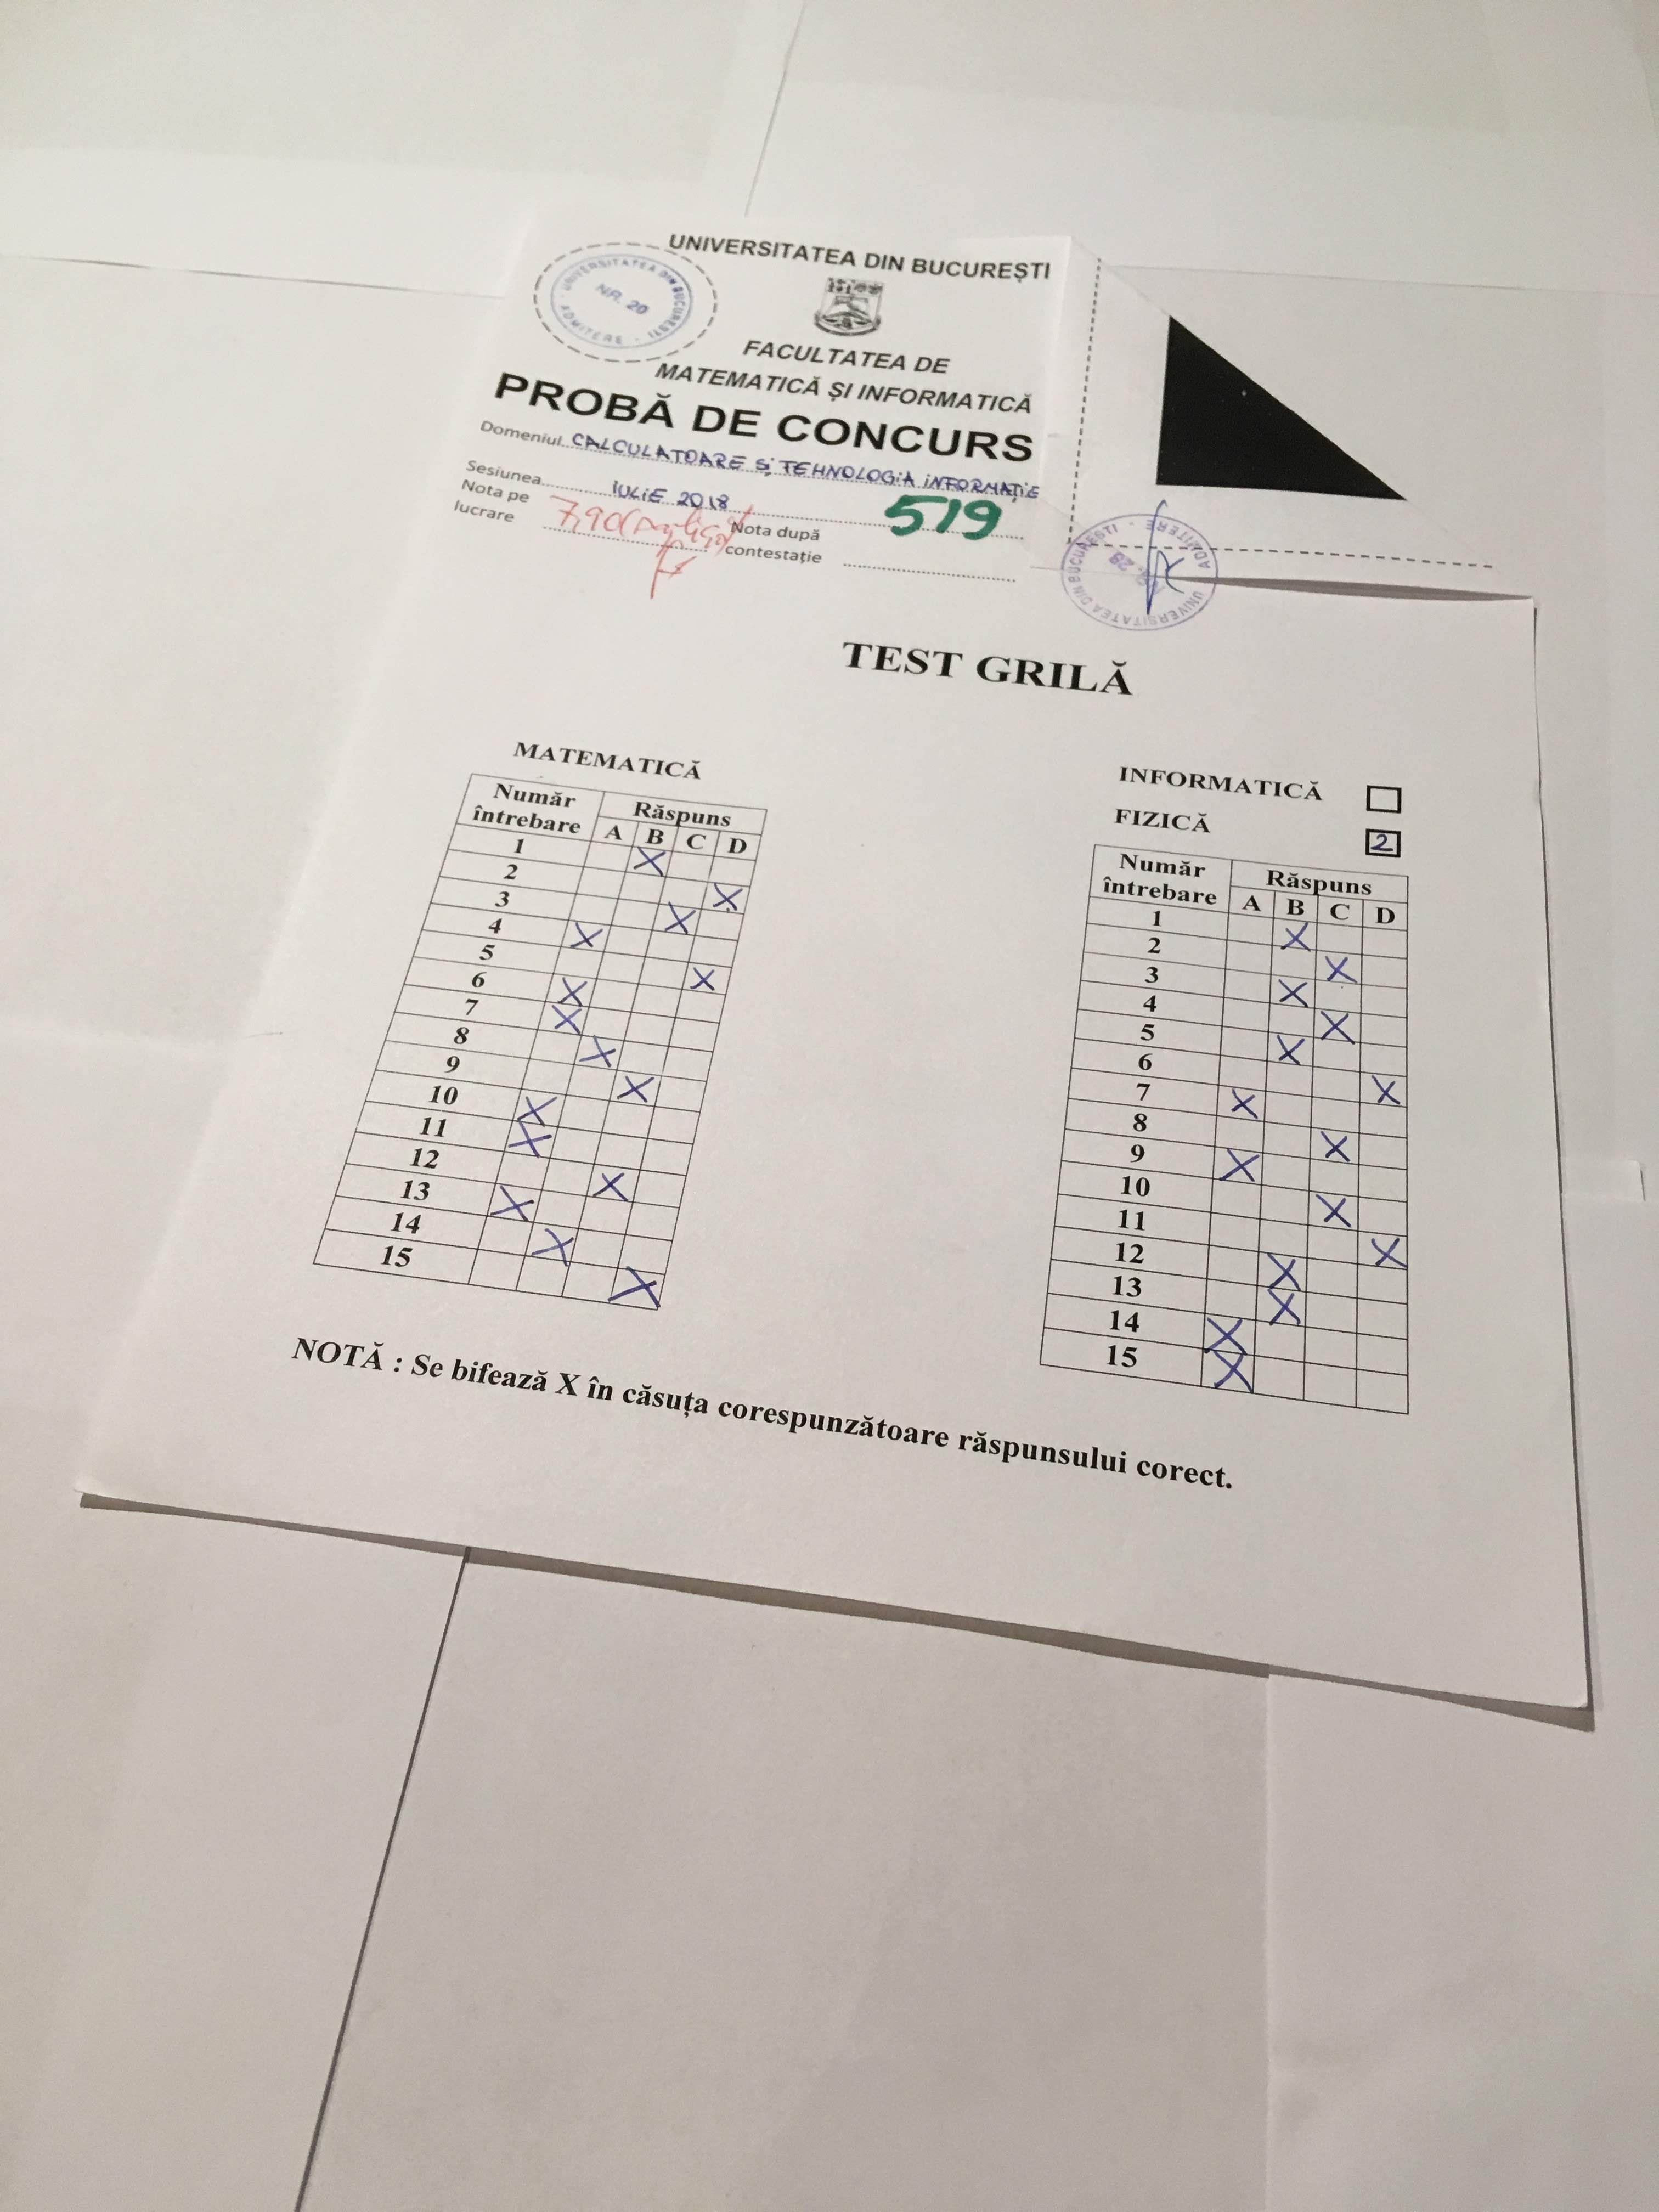 UNIVERSITATEA DIN BUCUREȘTI
UNIVERSITATEA DIN BUCUREȘTI · ADMITERE ·
NR. 20
FACULTATEA DE
MATEMATICĂ ȘI INFORMATICĂ
PROBĂ DE CONCURS
Domeniul CALCULATOARE ȘI TEHNOLOGIA INFORMAȚIE
Sesiunea IULIE 2018
519
Nota pe lucrare 7,90
Nota după contestație
UNIVERSITATEA DIN BUCUREȘTI · ADMITERE
28
TEST GRILĂ
MATEMATICĂ
Număr întrebare Răspuns
A B C D
1 X
2 X
3 X
4 X
5 X
6 X
7 X
8 X
9 X
10 X
11 X
12 X
13 X
14 X
15 X
INFORMATICĂ
FIZICĂ 2
Număr întrebare Răspuns
A B C D
1 X
2 X
3 X
4 X
5 X
6 X
7 X
8 X
9 X
10 X
11 X
12 X
13 X
14 X
15 X
NOTĂ : Se bifează X în căsuța corespunzătoare răspunsului corect.